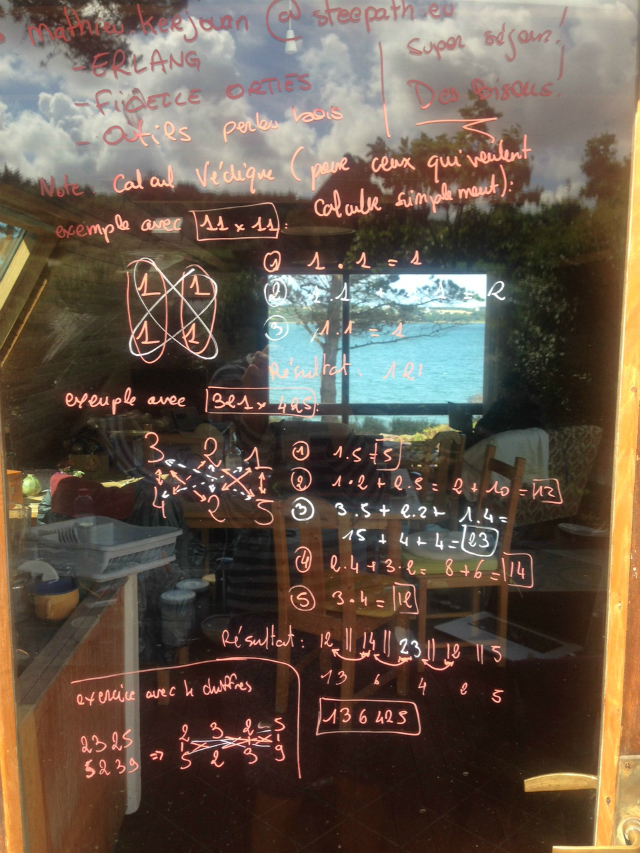 Mathieu Kerjouan @ steepath.eu
- ERLANG
- FICELLE ORTIES
- outils perdu bois
Super séjour!
Des Bisous!
Note: Calcul Védique (pour ceux qui veulent
Calculer simplement):
exemple avec 11 x 11:
1 1
1 1
① 1 . 1 = 1
② 1.1 1 = 2
③ 1.1 = 1
Résultat: 121
exemple avec 321 x 425:
3 2 1
4 2 5
① 1.5 = 5
② 1.2 + 2.5 = 2 + 10 = 12
③ 3.5 + 2.2 + 1.4 =
15 + 4 + 4 = 23
④ 2.4 + 3.2 = 8 + 6 = 14
⑤ 3.4 = 12
Résultat: 12 || 14 || 23 || 12 || 5
13 6 4 2 5
136425
exercice avec 4 chiffres
2325
5239 =>
2 3 2 5
5 2 3 9